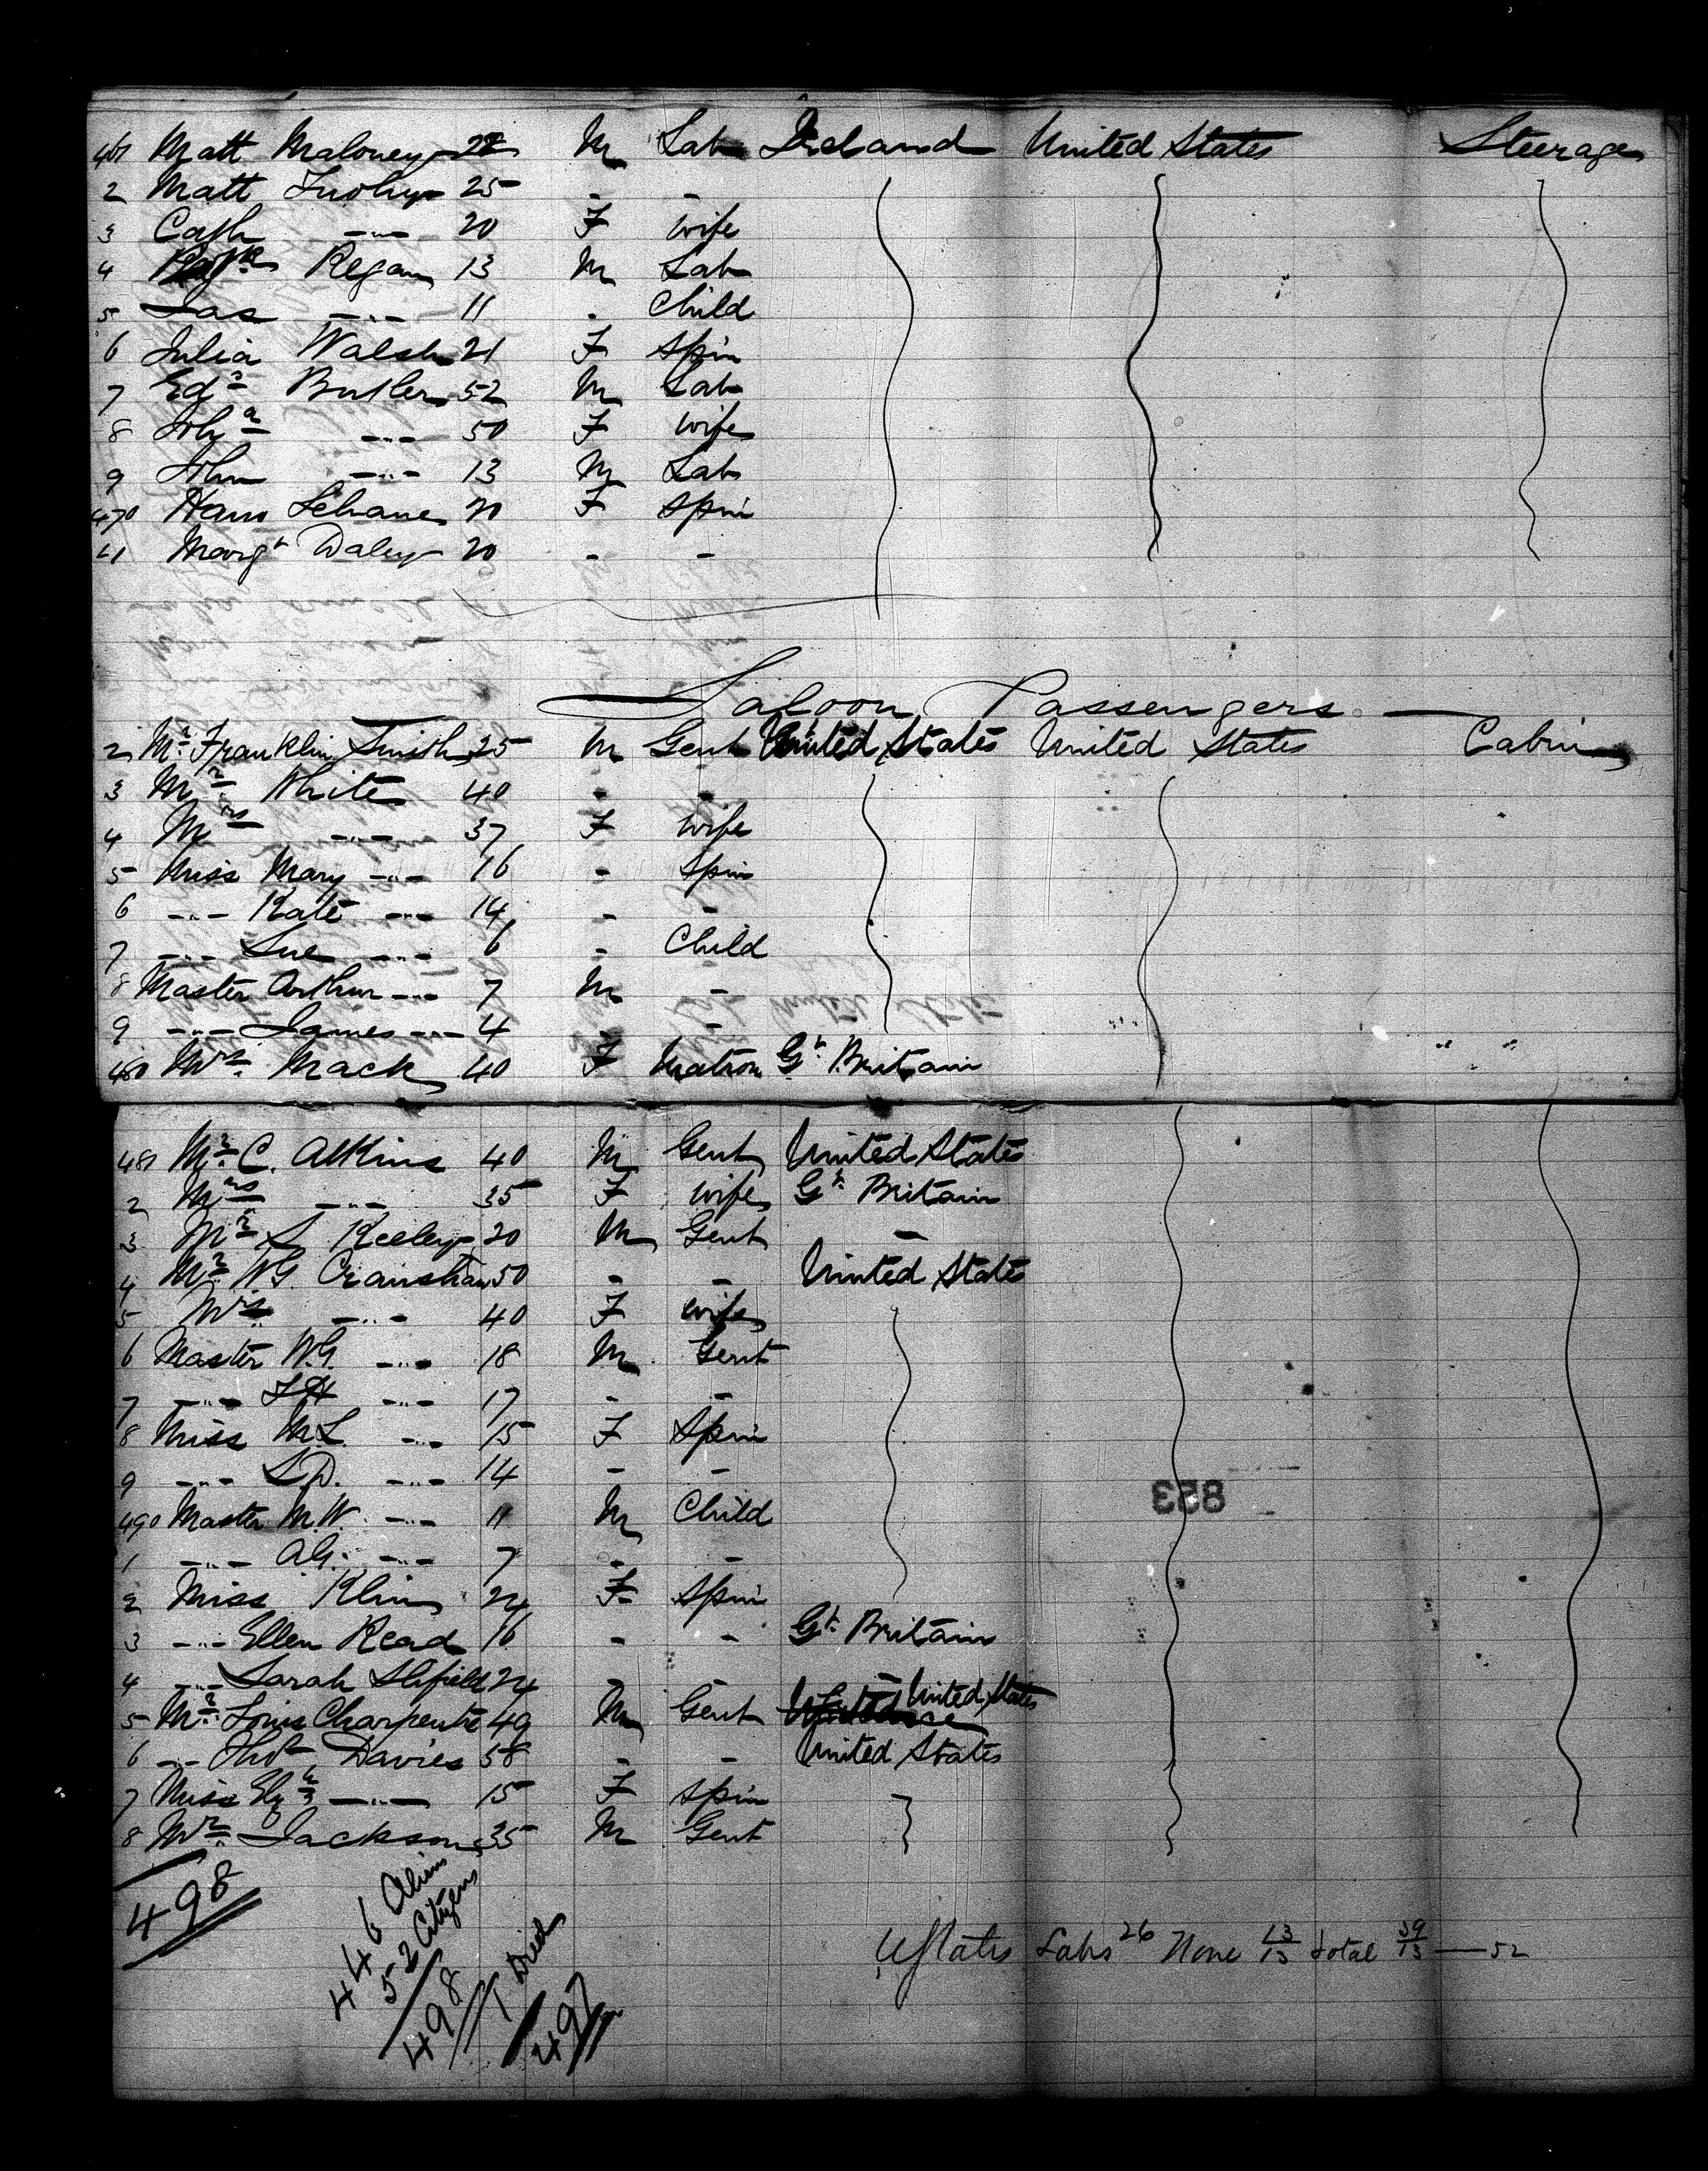 461 Matt Maloney 22 M Lab Ireland United States Steerage
2 Matt 25 - -
3 Cath -"- 20 F Wife
4 Regan 13 M Lab
5 Jas -"- 11 - Child
6 Julia Walsh 21 F Spin
7 Edd Butler 52 M Lab
8 Joha -"- 50 F Wife
9 John -"- 13 M Lab
470 Lehane 20 F Spin
11 Margt Daley 20 - -
Saloon Passengers
2 Mr Franklin Smith 25 M Gent United States United States Cabin
3 Mr White 40 - -
4 Mrs -"- 37 F Wife
5 Miss Mary -"- 16 - Spin
6 -"- Kate -"- 14 - -
7 -"- Sue -"- 6 - Child
8 Master Arthur -"- 7 M -
9 -"- James -"- 4 - -
480 Mrs Mack 40 F Matron Gt Britain " "
481 Mr C. Atkins 40 M Gent United States
2 Mrs -"- 35 F Wife Gt Britain
3 Mr S Keeley 20 M Gent -
4 Mr WG Crainshaw 50 - - United States
5 Mrs -"- 40 F Wife
6 Master W.G. -"- 18 M Gent
7 -"- -"- 17 - -
8 Miss M.L. -"- 15 F Spin
9 -"- L.D. -"- 14 - -
490 Master M.W. -"- 11 M Child
1 -"- A.G. -"- 7 - -
2 Miss Klin 24 F Spin
3 -"- Ellen Read 16 - - Gt Britain
4 -"- Sarah 24 - - -
5 Mr Louis Charpentie 49 M Gent United States
6 -"- Thos Davies 58 - - United States
7 Miss Elizh -"- 15 F Spin
8 Mr Jackson 35 M Gent
498
446 Aliens
52 Citizens
498
1 Died
497
UStates Labs 26 None 13/13 total 39/13 — 52
853